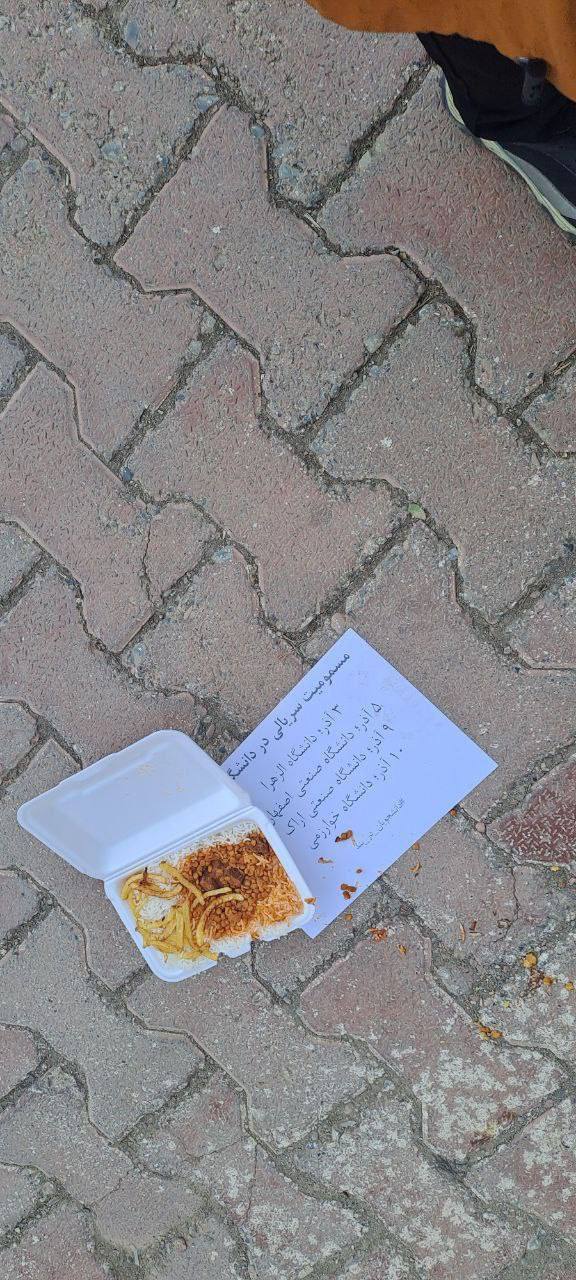 مسمومیت سریالی در دانشگ
۳ آذر: دانشگاه الزهرا
۵ آذر: دانشگاه صنعتی اصفهان
۹ آذر: دانشگاه صنعتی اراک
۱۰ آذر: دانشگاه خوارزمی